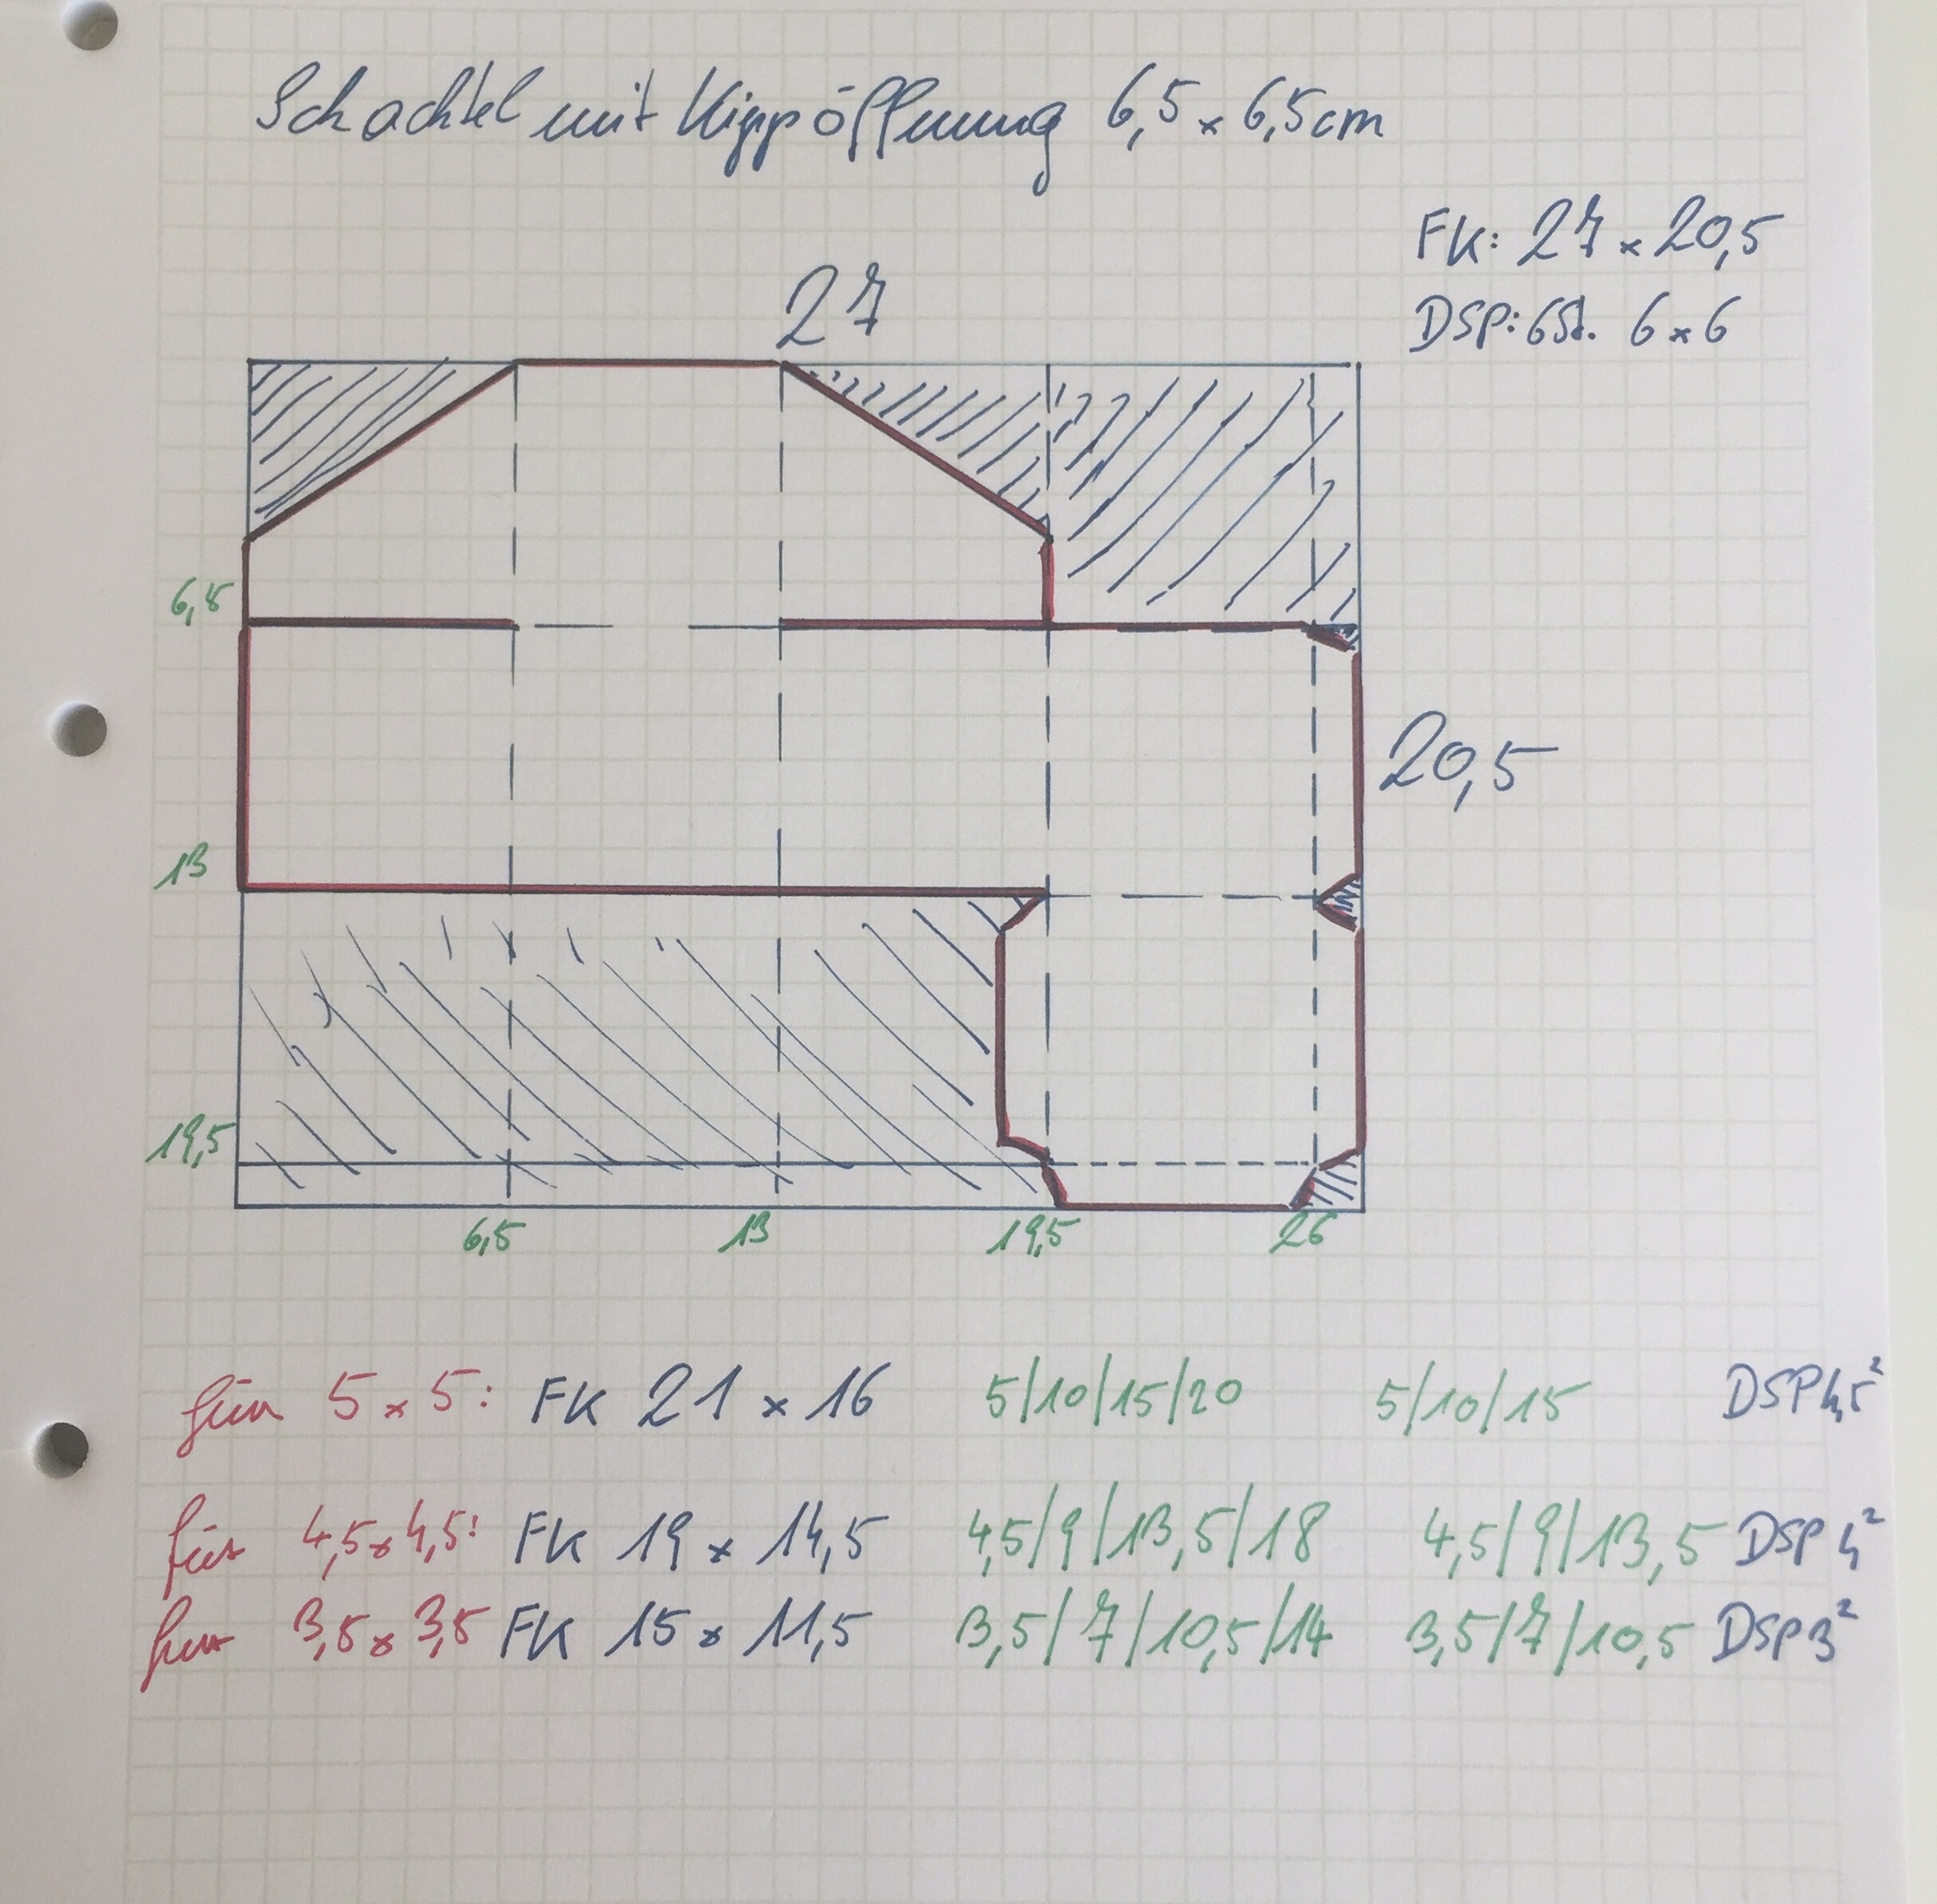 Schachtel mit Kippöffnung 6,5 x 6,5cm
FK: 27 x 20,5
DSP: 6St. 6 x 6
27
6,5
20,5
13
19,5
6,5 13 19,5 26
für 5 x 5: FK 21 x 16 5/10/15/20 5/10/15 DSP 4,5²
für 4,5 x 4,5: FK 19 x 14,5 4,5/9/13,5/18 4,5/9/13,5 DSP 4²
für 3,5 x 3,5 FK 15 x 11,5 3,5/7/10,5/14 3,5/7/10,5 DSP 3²